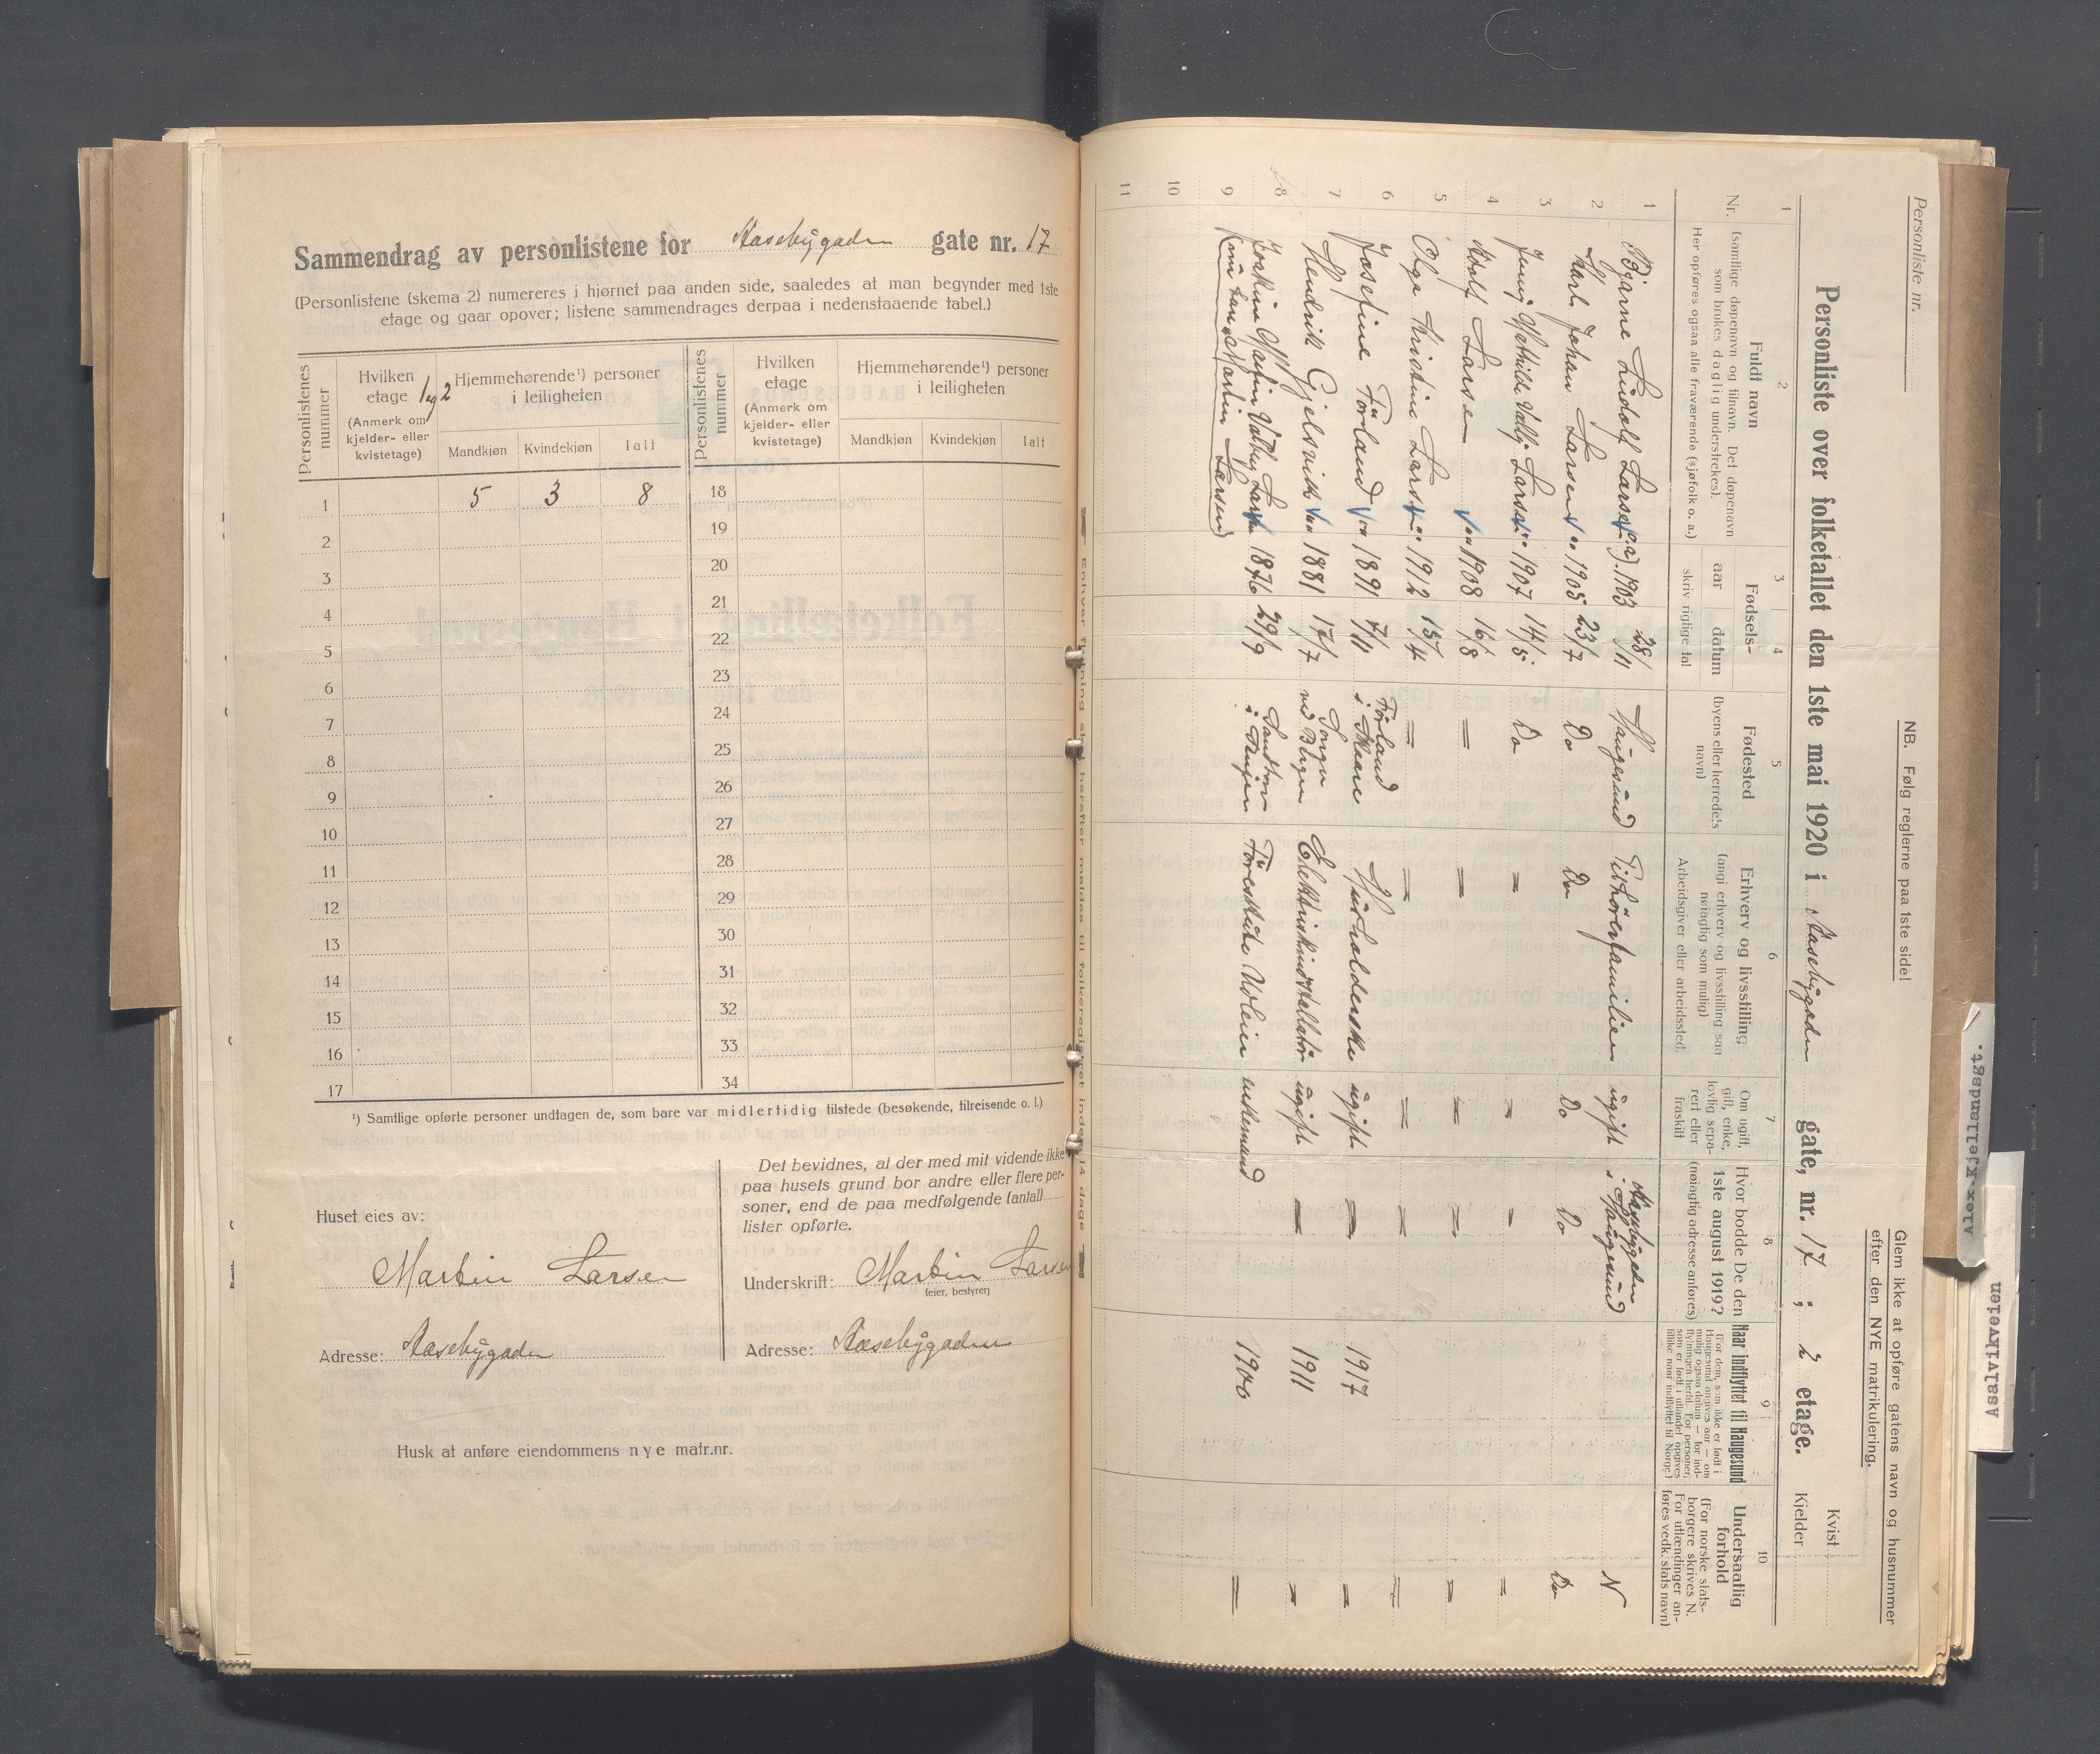 Sammendrag av personlistene for Aasebygaden gate nr. 17
(Personlistene (skema 2) numereres i hjørnet paa anden side, saaledes at man begynder med 1ste
etage og gaar opover; listene sammendrages derpaa i nedenstaaende tabel.)
Personlistenes nummer
Hvilken etage
1 og 2
(Anmerk om kjelder- eller kvistetage)
Hjemmehørende¹) personer i leiligheten
Mandkjøn Kvindekjøn Ialt
Personlistenes nummer
Hvilken etage
(Anmerk om kjelder- eller kvistetage)
Hjemmehørende¹) personer i leiligheten
Mandkjøn Kvindekjøn Ialt
1 5 3 8 18
2 19
3 20
4 21
5 22
6 23
7 24
8 25
9 26
10 27
11 28
12 29
13 30
14 31
15 32
16 33
17 34
¹) Samtlige opførte personer undtagen de, som bare var midlertidig tilstede (besøkende, tilreisende o. l.)
Huset eies av:
Martin Larsen
Adresse: Aasebygaden
Det bevidnes, at der med mit vidende ikke
paa husets grund bor andre eller flere per-
soner, end de paa medfølgende (antal)
lister opførte.
Underskrift: Martin Larsen
(eier, bestyrer)
Adresse: Aasebygaden
Husk at anføre eiendommens nye matr.nr.
Enhver flytning skal herefter meldes til folkeregistret inden 14 dage
Personliste nr.
NB. Følg reglerne paa 1ste side!
Glem ikke at opføre gatens navn og husnummer
efter den NYE matrikulering.
Personliste over folketallet den 1ste mai 1920 i Aasebygaden gate, nr. 17 ; 2 etage.
Kvist
Kjelder
1 2 3 4 5 6 7 8 9 10
Nr.
Fuldt navn
(samtlige døpenavn og tilnavn. Det døpenavn
som brukes daglig understrekes).
Her opføres ogsaa alle fraværende (sjøfolk o. a.)
Fødsels-
aar datum
skriv rigtige tal
Fødested
(byens eller herredets
navn)
Erhverv og livsstilling
(angi erhverv og livsstilling saa
nøiagtig som mulig)
Arbeidsgiver eller arbeidssted.
Om ugift,
gift, enke,
lovlig sepa-
rert eller
fraskilt
Hvor bodde De den
1ste august 1919?
(nøiagtig adresse anføres)
Naar indflyttet til Haugesund
(For dem, som ikke er født i
Haugesund angives aar — om
mulig ogsaa datum — for ind-
flytningen hertil. For personer,
som er født i utlandet opgives
tillike naar indflyttet til Norge.)
Undersaatlig
forhold
(For norske stats-
borgere skrives N.
For utlændinger an-
føres vedk. stats navn)
1 Bjarne Ludolf Larsen 1903 28/11 Haugesund Tilhører familien ugift Aasebygaden i Haugesund N
2 Karl Johan Larsen 1905 23/7 Do Do Do Do Do
3 Jenny Mathilde Larsen 1907 14/5 Do = = - =
4 Adolf Larsen 1908 16/8 = = = = =
5 Olga Kristine Larsen 1912 15/4 = = = = =
6 Josefine Förland 1891 7/11 Förland i Skaare Husholderske ugift = 1917 =
7 Hendrik Gjelsvik 1881 17/7 Sogn ved Bergen Elektriskinstallatör ugift = 1911 =
8 Martin Larsen 1876 29/9 enkemand 1900 =
9 Kun kun Martin Larsen)
10
11
Alex Kjellandsgt.
Asalvikveien